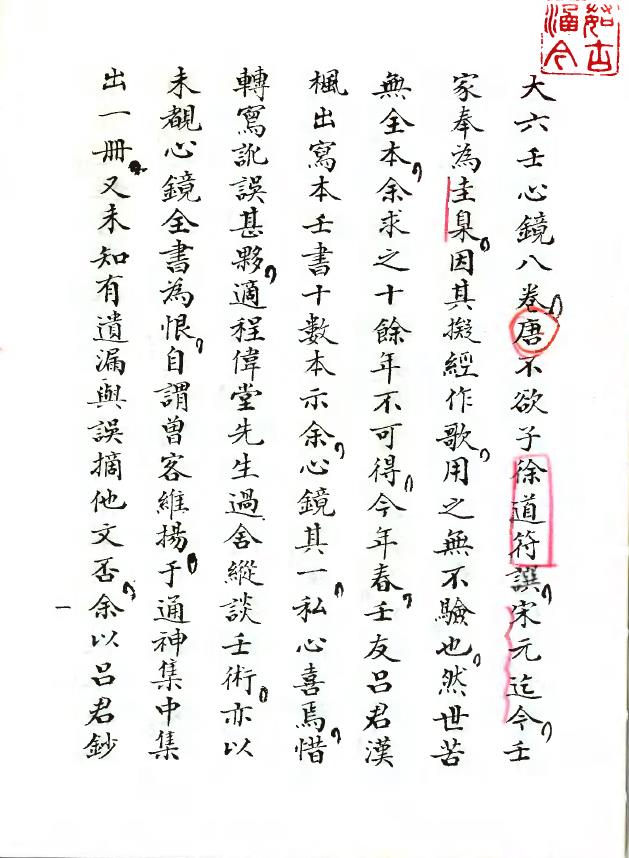 茹古涵今
大六壬心鏡八卷唐不欲子徐道符譔宋元迄今壬
家奉為圭臬因其擬經作歌用之無不驗也然世苦
無全本余求之十餘年不可得今年春壬友吕君漢
楓出寫本壬書十數本示余心鏡其一私心喜焉惜
轉寫訛誤甚夥適程偉堂先生過舍縱談壬術亦以
未覩心鏡全書為恨自謂曾客維揚于通神集中集
出一冊又未知有遺漏與誤摘他文否余以吕君鈔
一